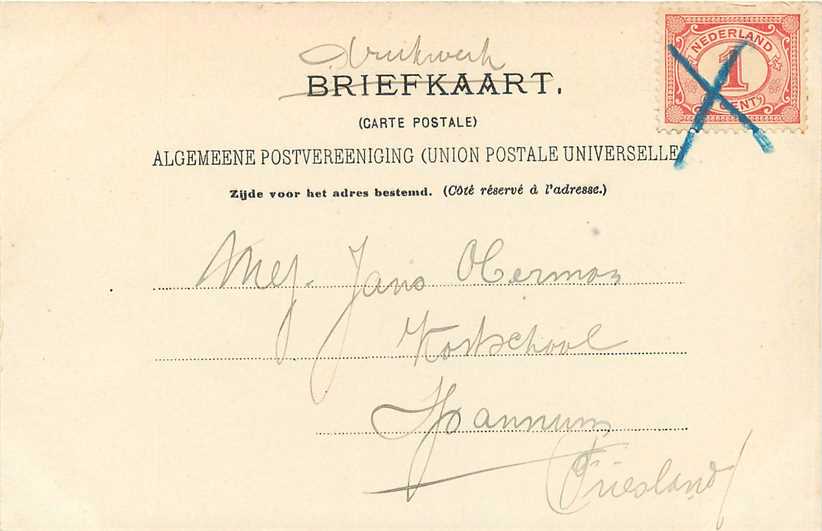 drukwerk
NEDERLAND
1
CENT
BRIEFKAART.
(CARTE POSTALE)
ALGEMEENE POSTVEREENIGING (UNION POSTALE UNIVERSELLE)
Zijde voor het adres bestemd. (Côté réservé à l'adresse.)
Mej. Jans
Kostschool
Spannum
(Friesland)